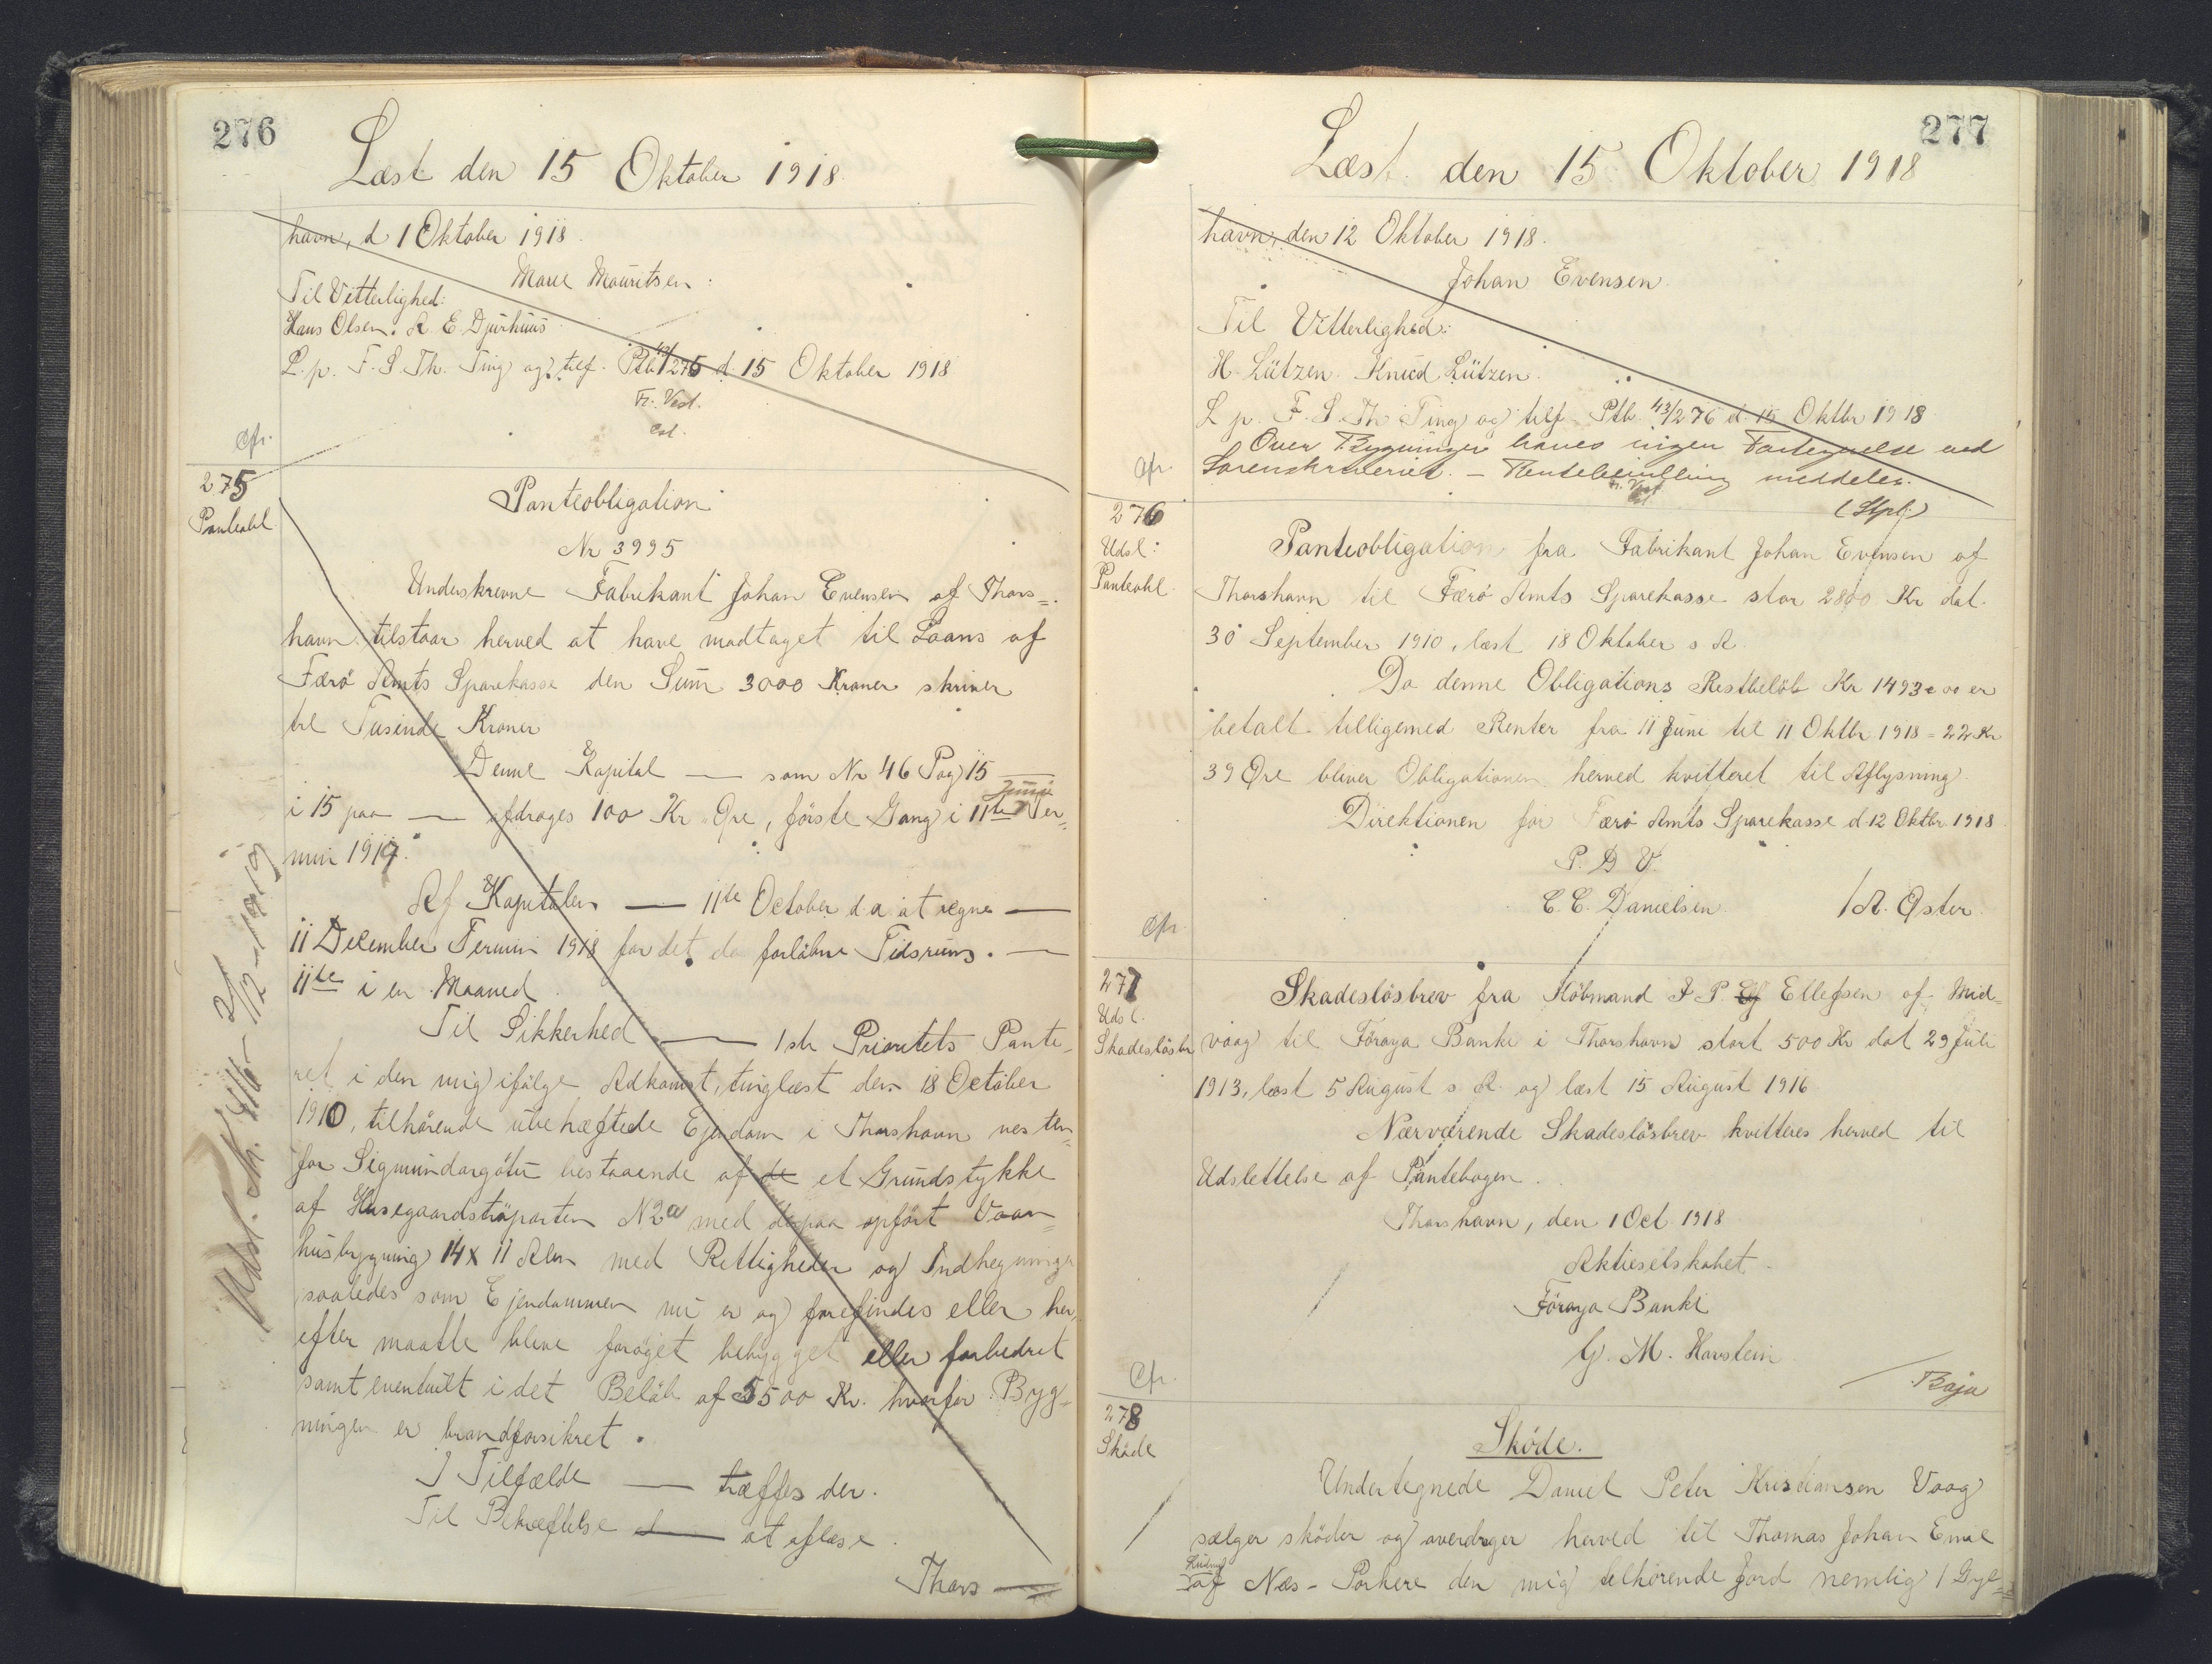 276
Læst den 15 Oktober 1918.
havn, d 1 Oktober 1918.
Marie Mouritsen
Til Vitterlighed:
Hans Olsen. A. E. Djurhuus
L. p. F. S. Th. Ting og tilf. Ptb. 43/275 d. 15 Oktober 1918
Fr. Vest.
cst.
Cfr.
275
Panteobl.
Panteobligation
Nr 3995
Underskrevne Fabrikant Johan Evensen af Thors=
havn tilstaar herved at have modtaget til Laans af
Færö Amts Sparekasse den Sum 3000 Kroner skriver
tre Tusinde Kroner
Denne Kapital — som Nr 46 Pag 15 —
i 15 paa — afdrages 100 Kr Øre, förste Gang i 11te Juni Ter=
min 1919.
Af Kapitalen — 11te October d. a. at regne —
11 December Termin 1918 for det da forlöbne Tidsrum. —
11te i en Maaned.
Til Sikkerhed — 1ste Prioritets Pante=
ret i den mig ifölge Adkomst, tinglæst den 18 October
1910, tilhörende ubehæftede Ejendom i Thorshavn vesten=
for Sigmundargötu bestaaende af de et Grundstykke
af Husegaardstrøparten N 2a med derpaa opfört Vaan=
husbygning 14 x 11 Alen med Rettigheder og Indhegninger
saaledes som Ejendommen nu er og forefindes eller her=
efter maatte blive foröget bebygget eller forbedret
samt eventuelt i det Belöb af 5500 Kr. hvorfor Byg=
ningen er brandforsikret.
I Tilfælde — træffes der.
Til Bekræftelse — at aflæse.
Thors —
Udsl.
277
Læst den 15 Oktober 1918
havn, den 12 Oktober 1918.
Johan Evensen.
Til Vitterlighed:
H. Lützen. Knud Lützen.
L p. F. S. Th Ting og tilf. Ptb. 43/276 d. 15 Oktbr 1918
Over Bygninger haves ingen Fortegnelse ved
Sorenskriveriet. — Rentebevilling meddeles.
Fr. Vest
cst
(Stpl:)
Cfr.
276
Udsl:
Panteobl.
Panteobligation fra Fabrikant Johan Evensen af
Thorshavn til Færö Amts Sparekasse stor 2800 Kr dat.
30 September 1910, læst 18 Oktober s A.
Da denne Obligations Restbelöb Kr 1493 00 er
betalt tilligemed Renter fra 11 Juni til 11 Oktbr 1918 = 22 Kr
39 Øre bliver Obligationen herved kvitteret til Aflysning.
Direktionen for Færö Amts Sparekasse d. 12 Oktbr 1918
P. D V.
C. C. Danielsen. / A. Øster.
Cfr.
277
Udsl.
Skadeslösbr
Skadeslösbrev fra Köbmand J. P. Ellefsen af Mid=
vaag til Föroya Banki i Thorshavn stort 500 Kr dat 29 Juli
1913, læst 5 August s A. og læst 15 August 1916.
Nærværende Skadeslösbrev kvitteres herved til
Udslettelse af Pantebogen.
Thorshavn, den 1 Oct. 1918
Aktieselskabet
Föroya Banki
G. M. Havstein
/ Baja
Cfr.
278
Sköde
Sköde.
Undertegnede Daniel Peter Kristiansen Vaag
sælger sköder og overdrager herved til Thomas Johan Emil
af Næs - Porkere den mig tilhörende Jord nemlig 1 Gyl=